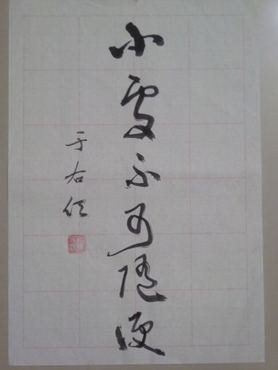 小處不可隨便
于右任